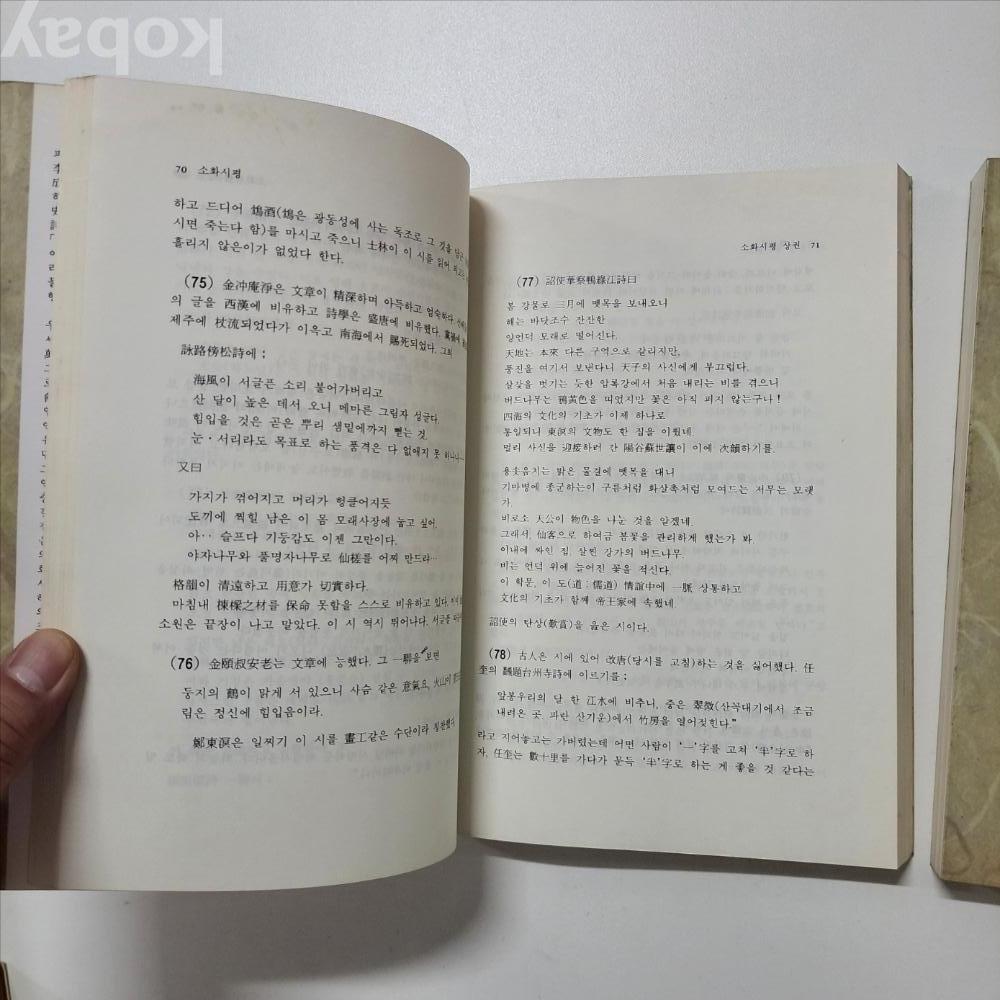 kobay
70 소화시평
하고 드디어 鴆酒(鴆은 광동성에 사는 독조로 그 깃을 담근
시면 죽는다 함)를 마시고 죽으니 士林이 이 시를 읽어
흘리지 않은이가 없었다 한다.
(75) 金冲庵淨은 文章이 精深하며 아득하고 엄숙하다.
의 글을 西漢에 비유하고 詩學은 盛唐에 비유했다.
제주에 杖流되었다가 이윽고 南海에서 賜死되었다. 그의
詠路傍松詩에;
海風이 서글픈 소리 불어가버리고
산 달이 높은 데서 오니 메마른 그림자 성글다.
힘입을 것은 곧은 뿌리 샘밑에까지 뻗는 것.
눈·서리라도 목표로 하는 품격은 다 없애지 못
又曰
가지가 꺾어지고 머리가 헝클어지듯
도끼에 찍힐 남은 이 몸 모래사장에 눕고 싶어.
아‥ 슬프다 기둥감도 이젠 그만이다.
야자나무와 풀명자나무로 仙槎를 어찌 만드랴…
格韻이 清遠하고 用意가 切實하다.
마침내 棟樑之材를 保命 못함을 스스로 비유하고 있다.
소원은 끝장이 나고 말았다. 이 시 역시 뛰어나다.
(76) 金頤叔安老는 文章에 능했다. 그 一聯을 보면
둥지의 鶴이 맑게 서 있으니 사슴 같은 意氣요, 火山이
림은 정신에 힘입음이라.
鄭東溟은 일찌기 이 시를 畫工같은 수단이라 칭찬했다.
소화시평 상권 71
(77) 詔使華察鴨綠江詩曰
봄 강물로 三月에 뗏목을 보내오니
해는 바닷조수 잔잔한
앞언덕 모래로 떨어진다.
天地는 本來 다른 구역으로 갈리지만,
풍진을 여기서 보낸다니 天子의 사신에게 부끄럽다.
살갗을 벗기는 듯한 압록강에서 처음 내리는 비를 겪으니
버드나무는 鵝黃色을 띠었지만 꽃은 아직 피지 않는구나!
四海의 文化의 기초가 이제 하나로
통일되니 東溟의 文物도 한 집을 이뤘네
멀리 사신을 迎接하러 간 陽谷蘇世讓이 이에 次韻하기를.
용솟음치는 밝은 물결에 뗏목을 대니
기마병에 종군하는이 구름처럼 화살촉처럼 모여드는 저무는 모랫
가.
비로소 天公이 物色을 나눈 것을 알겠네
그래서, 仙客으로 하여금 봄꽃을 관리하게 했는가 봐.
이내에 싸인 집, 살찐 강가의 버드나무.
비는 언덕 위에 늘어진 꽃을 적신다.
이 학문, 이 도(道:儒道) 情誼中에 一脈 상통하고
文化의 기초가 함께 帝王家에 속했네
詔使의 탄상(歎賞)을 읊은 시이다.
(78) 古人은 시에 있어 改唐(당시를 고침)하는 것을 싫어했다. 任
奎의 題台州寺詩에 이르기를;
앞봉우리의 달 한 江水에 비추니, 중은 翠微(산꼭대기에서 조금
내려온 곳, 파란 산기운)에서 竹房을 열어젖힌다."
라고 지어놓고는 가버렸는데 어떤 사람이 '一'字를 고쳐 '半'字로 하
자, 任奎는 數十里를 가다가 문득 '半'字로 하는 게 좋을 것 같다는